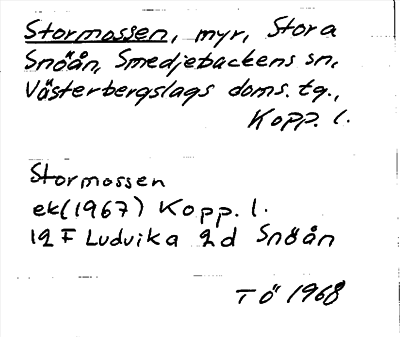 Stormossen, myr, Stora
Snöån, Smedjebackens sn,
Västerbergslags doms. tg.,
Kopp. l.
Stormossen
ek(1967) Kopp. l.
12 F Ludvika 2d Snöån
TÖ 1968